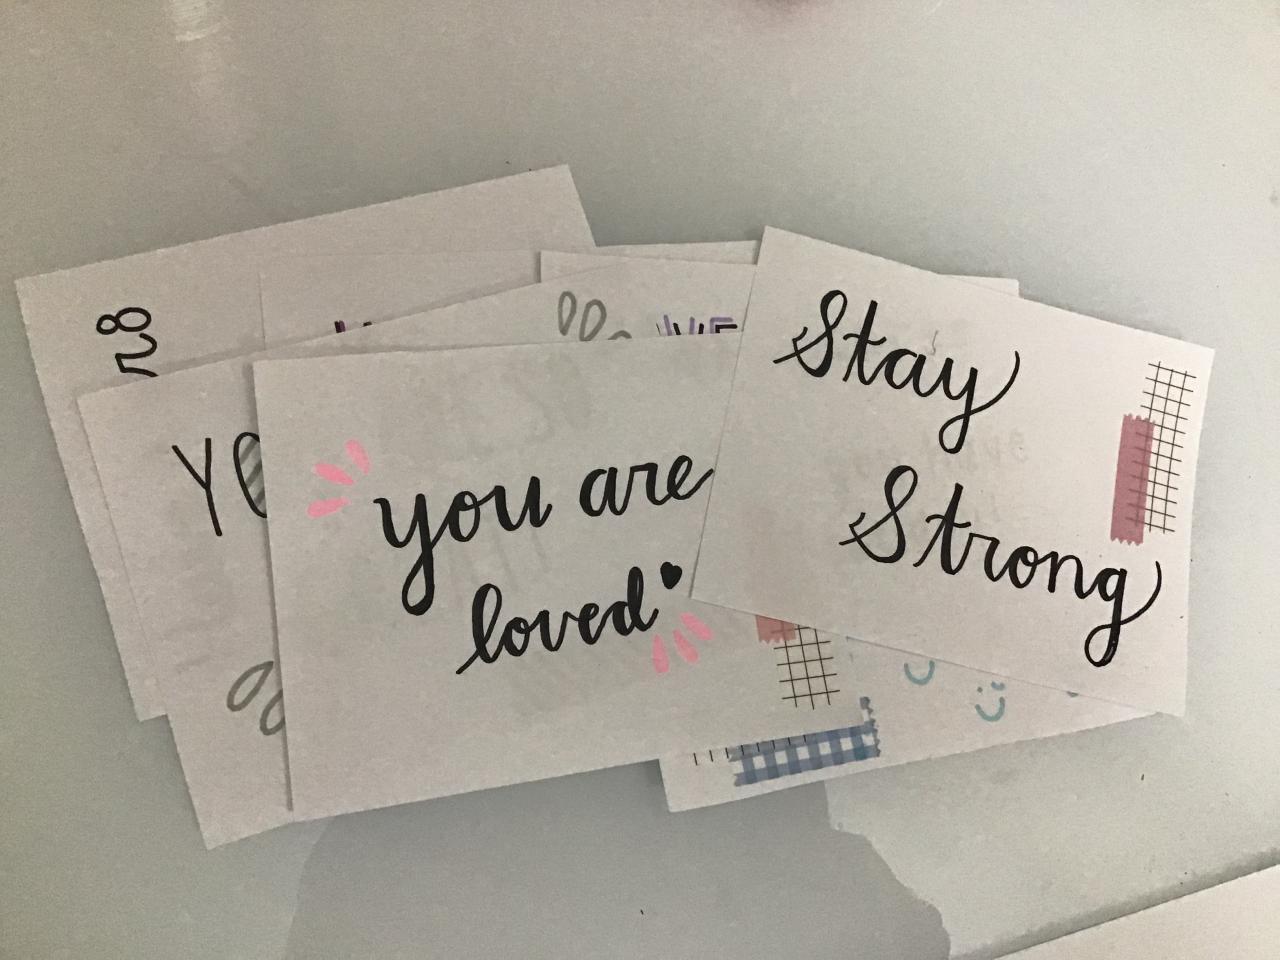 you are
loved
Stay
Strong